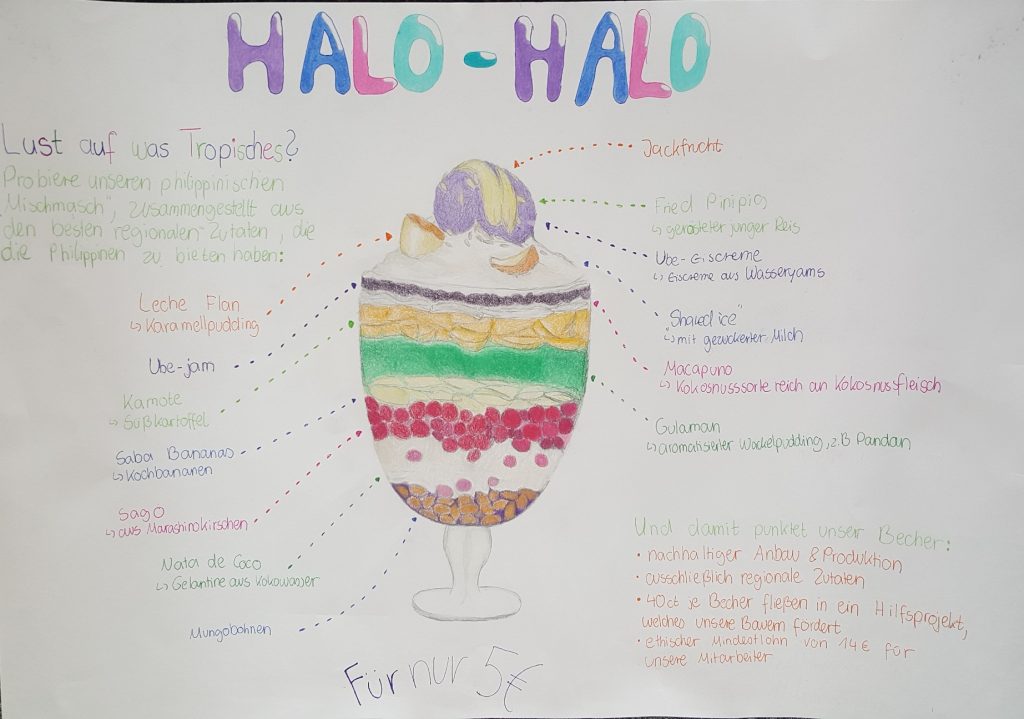 HALO-HALO
Lust auf was Tropisches?
Probiere unseren philippinischen
„Mischmasch", zusammengestellt aus
den besten regionalen Zutaten, die
die Philippinen zu bieten haben:
Leche Flan
↳ Karamellpudding
Ube-jam
Kamote
↳ Süßkartoffel
Saba Bananas
↳ Kochbananen
Sago
↳ aus Marashinokirschen
Nata de Coco
↳ Gelantine aus Kokowasser
Mungobohnen
Jackfrucht
Fried Pinipig
↳ gerösteter junger Reis
Ube-Eiscreme
↳ Eiscreme aus Wasseryams
"Shaved ice"
↳ mit gezuckerter Milch
Macapuno
↳ Kokosnusssorte reich an Kokosnusfleisch
Gulaman
↳ aromatisierter Wackelpudding, z.B Pandan
Und damit punktet unser Becher:
• nachhaltiger Anbau & Produktion
• ausschließlich regionale Zutaten
• 40ct je Becher fließen in ein Hilfsprojekt,
welches unsere Bauern fördert
• ethischer Mindestlohn von 14€ für
unsere Mitarbeiter
Für nur 5€